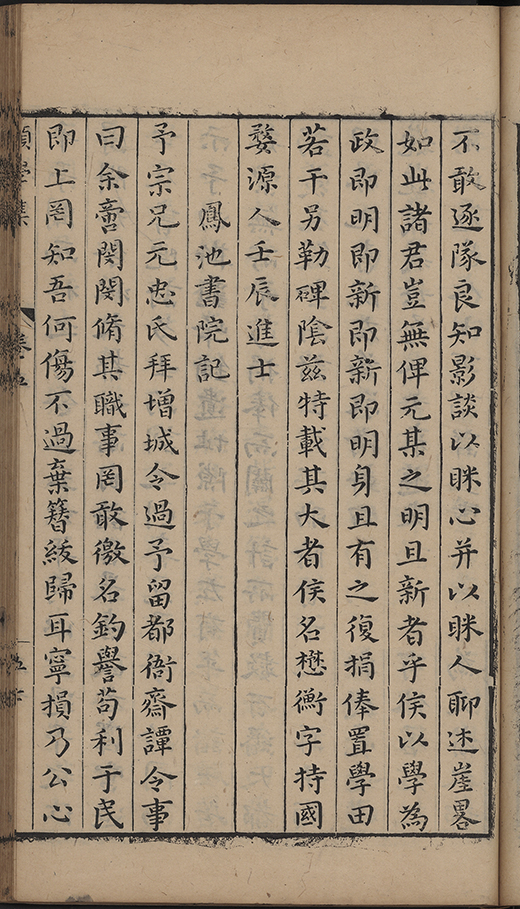 不敢逐隊良知影談以眯心并以眯人聊述崖畧
如此諸君豈無俾元某之明且新者乎侯以學為
政即明即新即新即明身且有之復捐俸置學田
若干另勒碑陰兹特載其大者侯名懋衡字持國
婺源人壬辰進士
鳳池書院記
予宗兄元忠氏拜增城令過予留都衙齋譚令事
曰余啻閔閔脩其職事罔敢徼名釣譽苟利于民
即上罔知吾何傷不過棄簪紱歸耳寧損乃公心
集
卷五